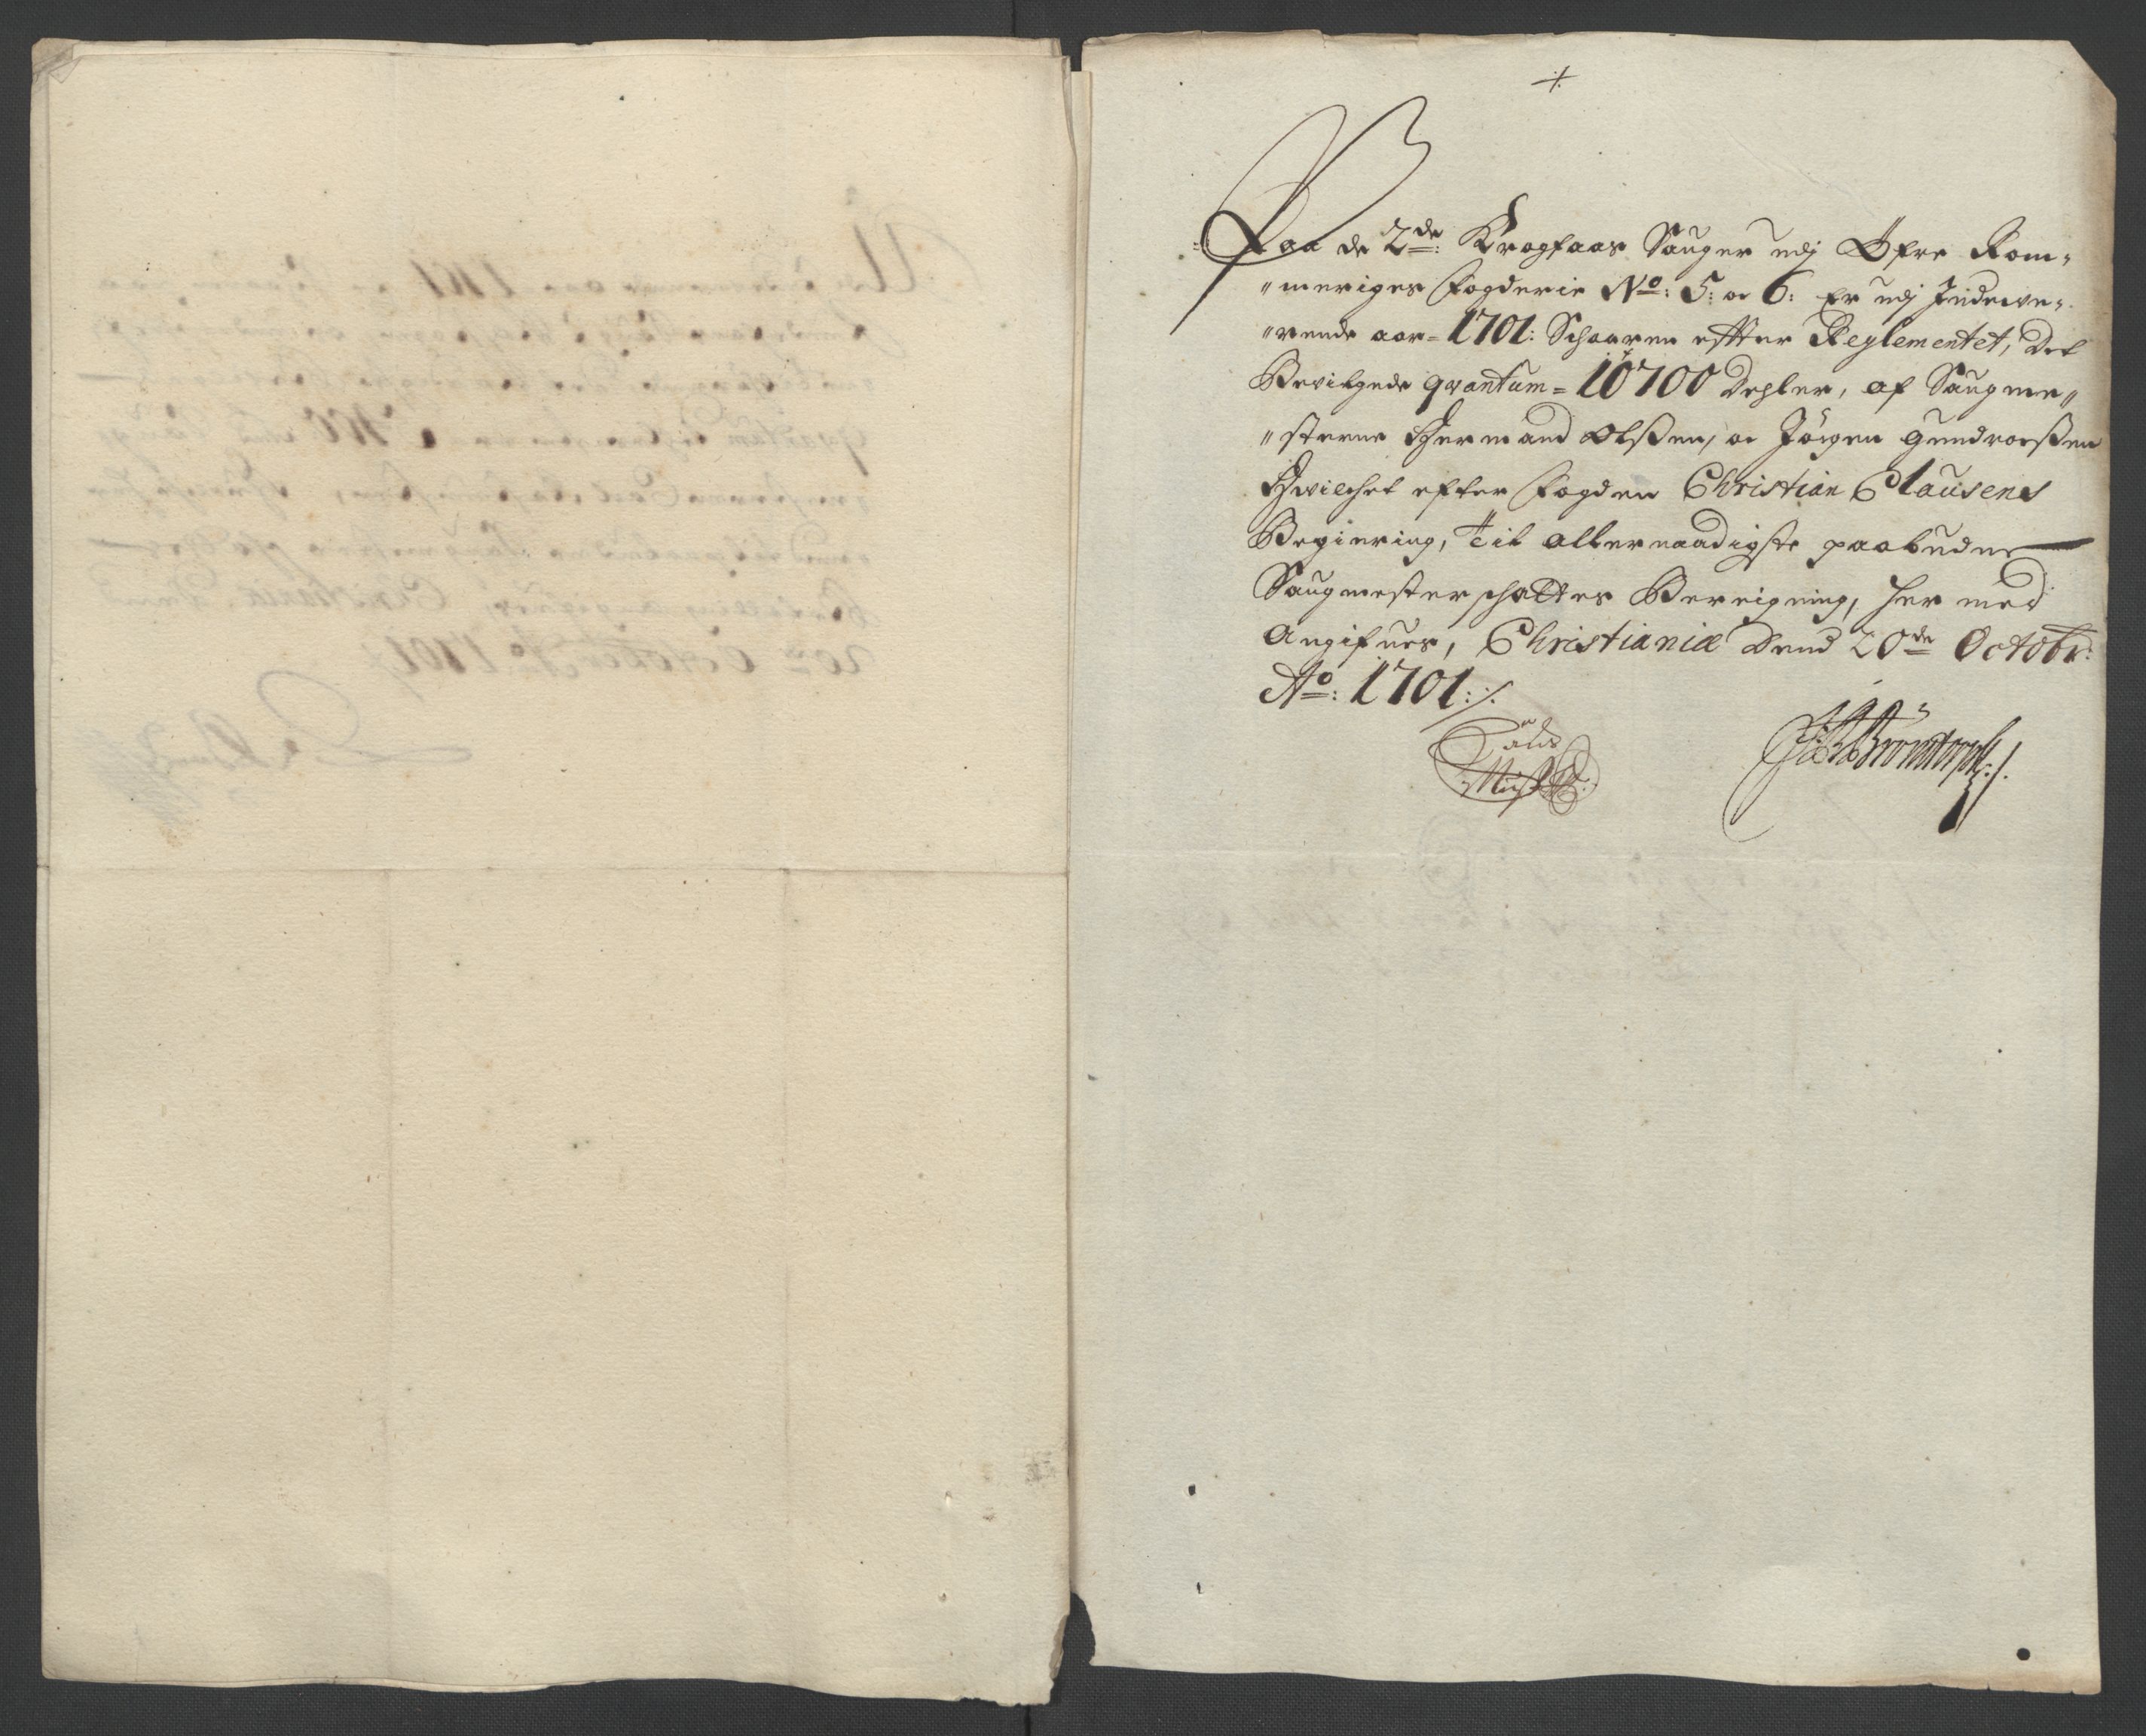 Paa de 2de: Krogfaas Sauger udj Øfre Rom„
„meriges Fogderie No: 5: oc 6: Er udj Indewe„
„rende aar= 1701: Schaaren effter Reglementet, Det
Bevilgede qvantum= 10700 Dehler, af Saugme„
„sterne Hermand Olßen, oc Jörgen Gundvorßen
Hvilchet efter Fogden Christian Clausens
Begiering, til allernaadigste paabudne
Saugmester schattes Bereigning, her med
Angifues, Christiania Dend 20de Octobr:
Ao: 1701:/.